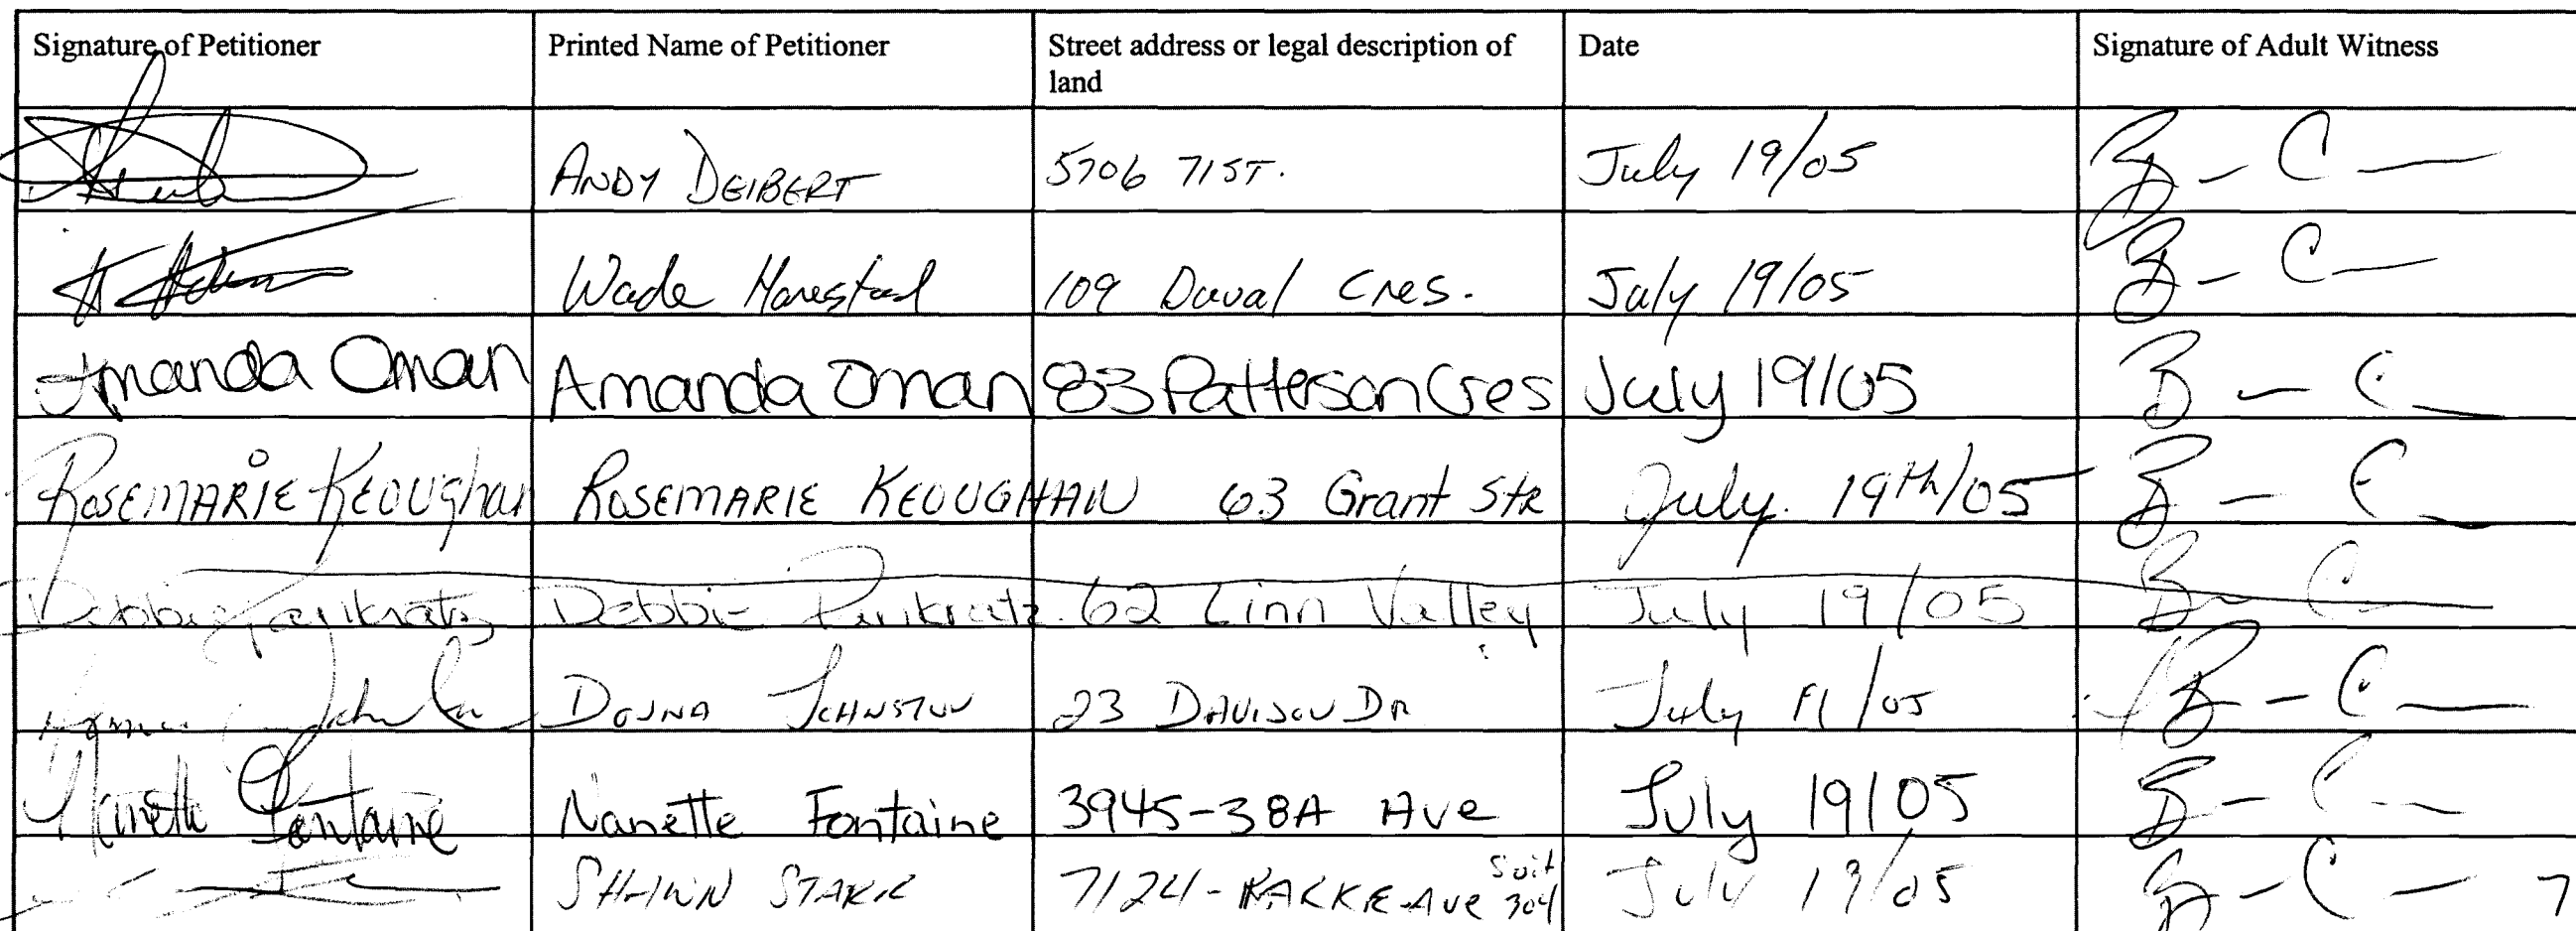 Signature of Petitioner
Printed Name of Petitioner
Street address or legal description of
land
Date
Signature of Adult Witness
ANDY DEIBERT 5706 71 ST. July 19/05 B - C
Wade 109 Duval Cres. July 19/05 B - C
Amanda Oman Amanda Oman 83 Patterson Cres July 19/05 B - C
ROSEMARIE KEOUGHAN ROSEMARIE KEOUGHAN 63 Grant Str July. 19th/05 B - C
Debbie Pankratz Debbie Pankratz 62 Linn Valley July 19/05 B - C
DONNA JOHNSTON 23 DAVISON DR July /05 B - C
Nanette Fontaine Nanette Fontaine 3945-38A Ave July 19/05 B - C
July 19/05 B - C 7